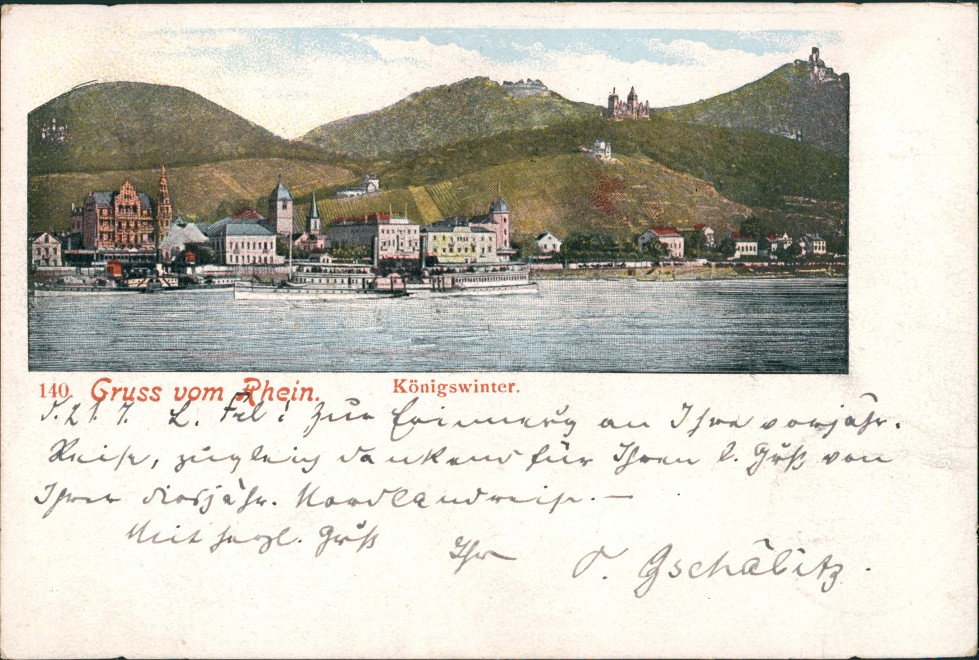 140. Gruss vom Rhein. Königswinter.
d. 21. 7. L. Frl! Zur Erinnerg an Ihre vorjähr.
Reise, zugleich dankend für Ihren l. Gruß von
Ihrer diesjähr. Nordlandreise. —
Mit herzl. Gruß Ihr O. Gschäbitz.